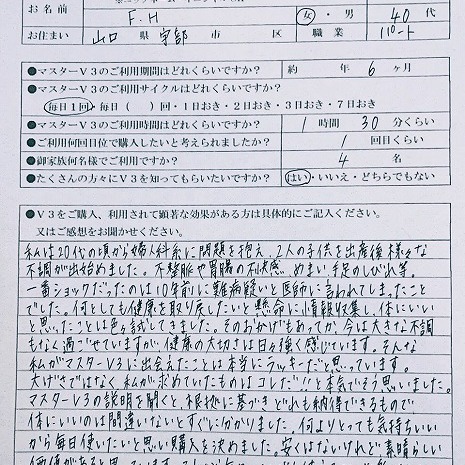 お名前 F.H 女・男 40代
お住まい 山口 県 宇部 市 区 職業 パート
●マスターV3のご利用期間はどれくらいですか? 約 年 6 ヶ月
●マスターV3のご利用サイクルはどれくらいですか?
毎日1回・毎日( )回・1日おき・2日おき・3日おき・7日おき
●マスターV3のご利用時間はどれくらいですか? 1 時間 30 分くらい
●ご利用何回目位で購入したいと考えられましたか? 1 回目くらい
●御家族何名様でご利用ですか? 4 名
●たくさんの方々にV3を知ってもらいたいですか? はい・いいえ・どちらでもない
●V3をご購入、利用されて顕著な効果がある方は具体的にご記入ください。
又はご感想をお聞かせください。
私は20代の頃から婦人科系に問題を抱え、2人の子供を出産後様々な
不調が出始めました。不整脈や胃腸の不快感、めまい、手足のしびれ等。
一番ショックだったのは10年前に難病疑いと医師に言われてしまったこと
でした。何としても健康を取り戻したいと懸命に情報収集し、体にいい
と思ったことは色々試してきました。そのおかげもあってか、今は大きな不調
もなく過ごせていますが、健康の大切さは日々強く感じています。そんな
私がマスターV3に出会えたことは本当にラッキーだと思っています。
大げさではなく、私が求めていたものはコレだ!!と本気でそう思いました。
マスターV3の説明を聞くと、根拠に基づきどれも納得できるもので
体にいいのは間違いないとすぐに分かりました。何よりとっても気持ちいい
から毎日使いたいと思い購入を決めました。安くはないけれど素晴らしい
価値があると思っています。